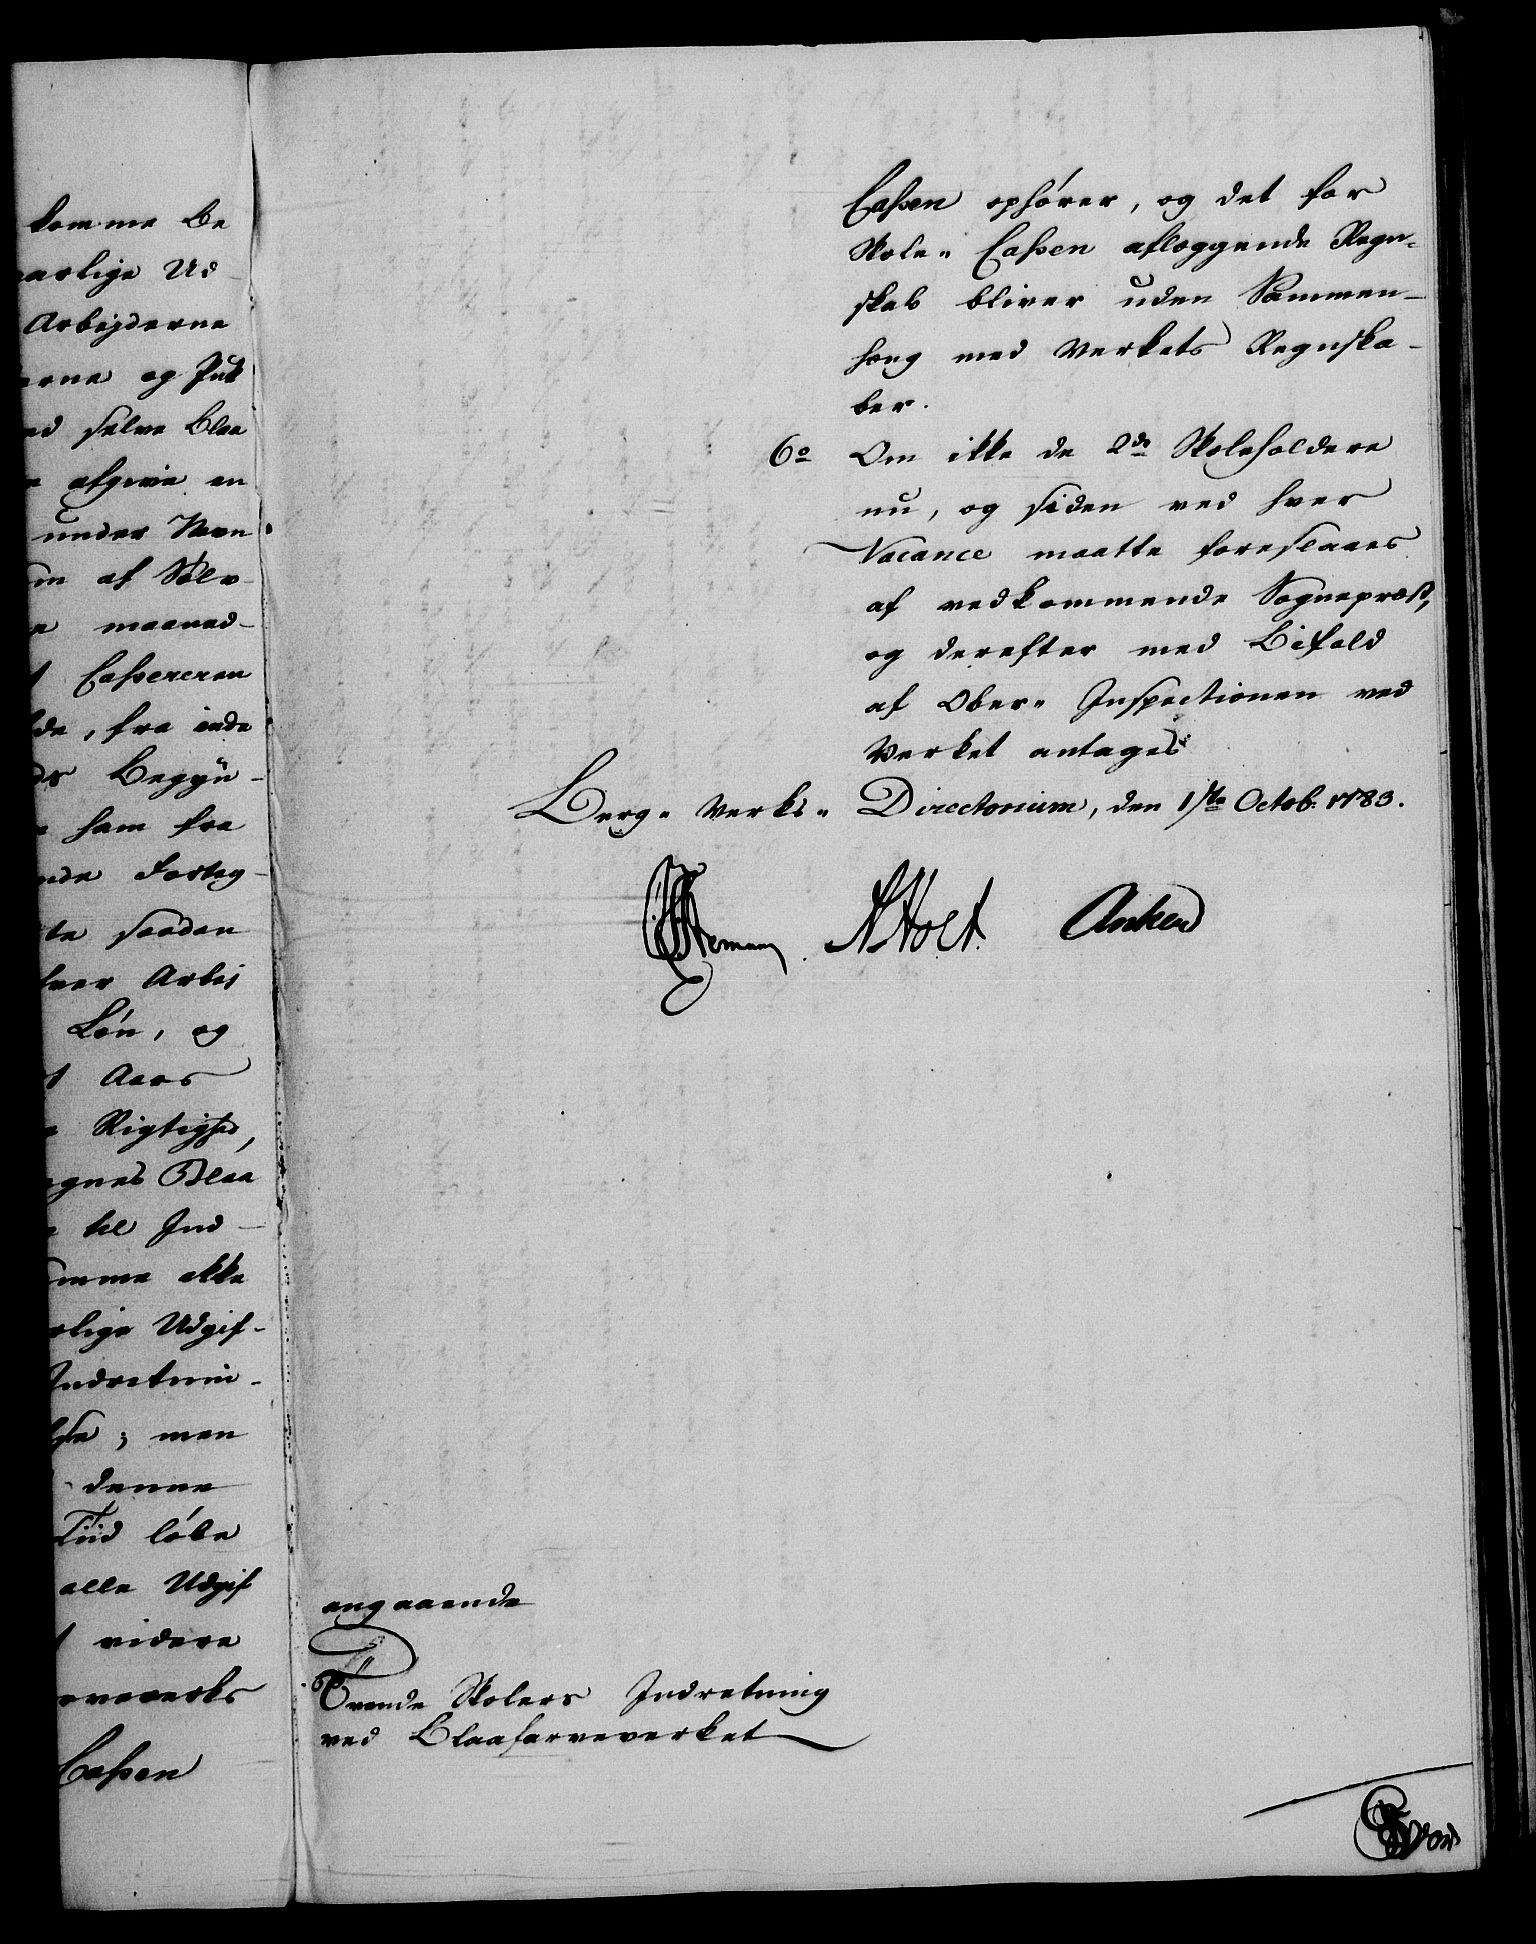 komme be
aarlige Ud-
Arbejderne
erne og Puk
ed selve Blaa
afgive en
under Navn
af Sølv-
maaned-
Casereren
de, fra inde
Begyn-
ham fra
nde Forteg-
te saadan
hver Arbej
Løn, og
Aars
Rigtighed,
egnes Blaa
til Ind-
omme ikke
rlige Udgif-
Indretnin-
se; men
denne
Tiid løbe
alle Udgif
videre
rveverks
Caßen
Caßen ophører, og det for
Skole„ Caßen aflæggende Regn-
skab bliver uden Sammen-
hæng med Verkets Regnska-
ber.
6o Om ikke de 2de Skoleholdere
nu, og siden ved hver
Vacance maatte foreslaaes
af vedkommende Sognepræst,
og derefter med Bifald
af Ober„ Inspectionen ved
Verket antages
Berg„ Verks„ Directorium, den 1ste Octob: 1783.
Holt. Anker
angaaende
Tvende Skolers Indretning
ved Blaafarveverket